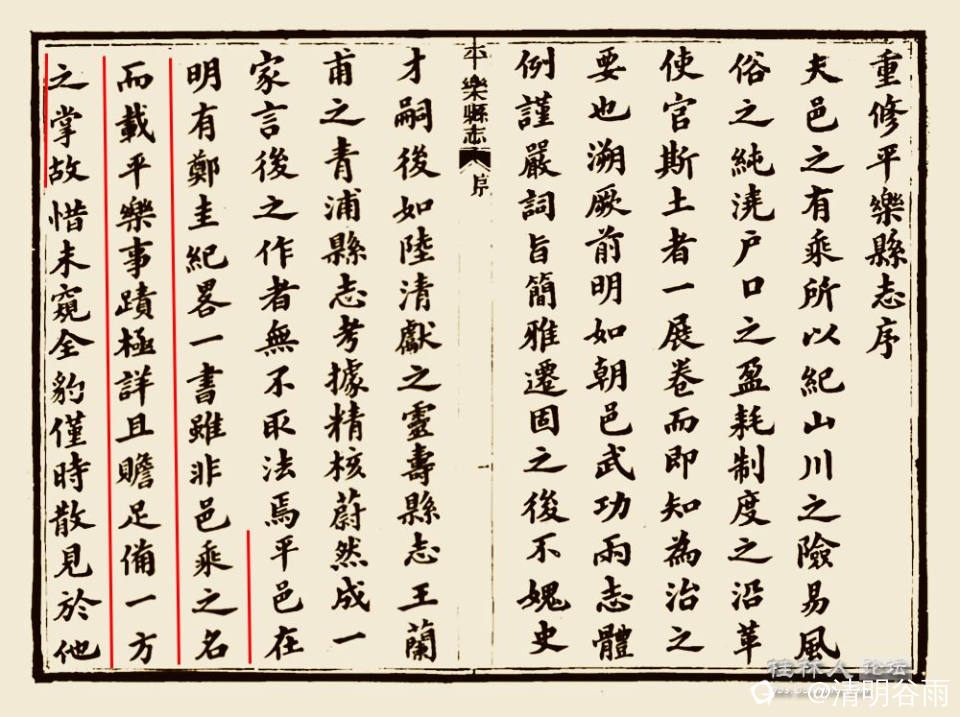 重修平樂縣志序
夫邑之有乘所以紀山川之險易風
俗之純澆户口之盈耗制度之沿革
使官斯土者一展卷而即知為治之
要也溯厥前明如朝邑武功兩志體
例謹嚴詞旨簡雅遷固之後不媿史
平樂縣志
序
才嗣後如陸清獻之靈壽縣志王蘭
甫之青浦縣志考據精核蔚然成一
家言後之作者無不取法焉平邑在
明有鄭圭紀畧一書雖非邑乘之名
而載平樂事蹟極詳且贍足備一方
之掌故惜未窺全豹僅時散見於他
桂林人论坛
@清明谷雨